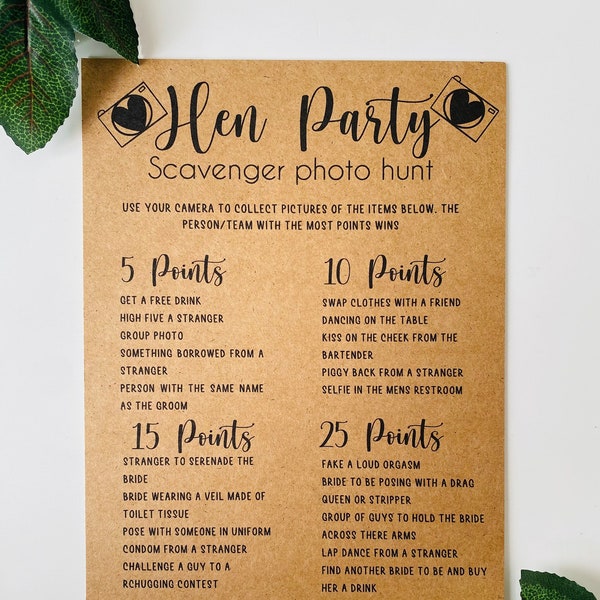 Hen Party
Scavenger photo hunt
USE YOUR CAMERA TO COLLECT PICTURES OF THE ITEMS BELOW. THE
PERSON/TEAM WITH THE MOST POINTS WINS
5 Points
GET A FREE DRINK
HIGH FIVE A STRANGER
GROUP PHOTO
SOMETHING BORROWED FROM A
STRANGER
PERSON WITH THE SAME NAME
AS THE GROOM
10 Points
SWAP CLOTHES WITH A FRIEND
DANCING ON THE TABLE
KISS ON THE CHEEK FROM THE
BARTENDER
PIGGY BACK FROM A STRANGER
SELFIE IN THE MENS RESTROOM
15 Points
STRANGER TO SERENADE THE
BRIDE
BRIDE WEARING A VEIL MADE OF
TOILET TISSUE
POSE WITH SOMEONE IN UNIFORM
CONDOM FROM A STRANGER
CHALLENGE A GUY TO A
RCHUGGING CONTEST
25 Points
FAKE A LOUD ORGASM
BRIDE TO BE POSING WITH A DRAG
QUEEN OR STRIPPER
GROUP OF GUYS TO HOLD THE BRIDE
ACROSS THERE ARMS
LAP DANCE FROM A STRANGER
FIND ANOTHER BRIDE TO BE AND BUY
HER A DRINK